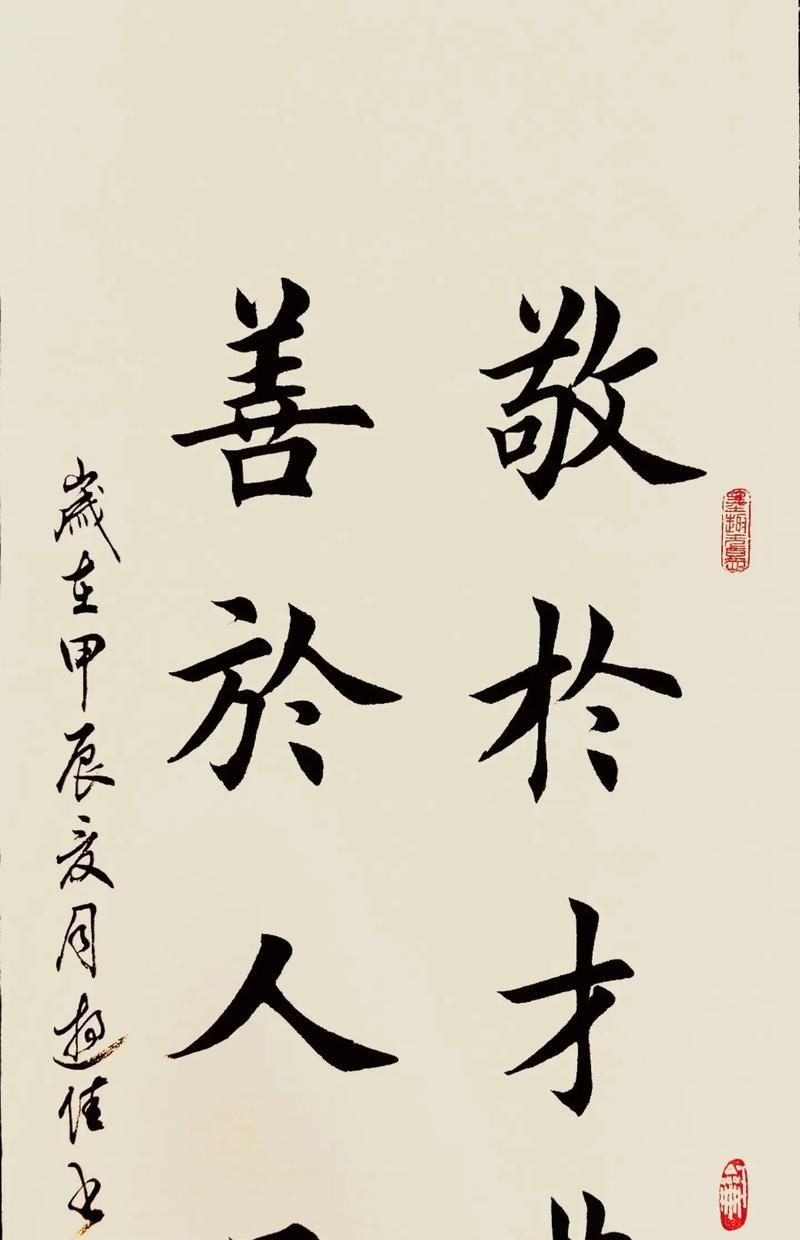 敬於才
善於人
歲在甲辰夏月佳书